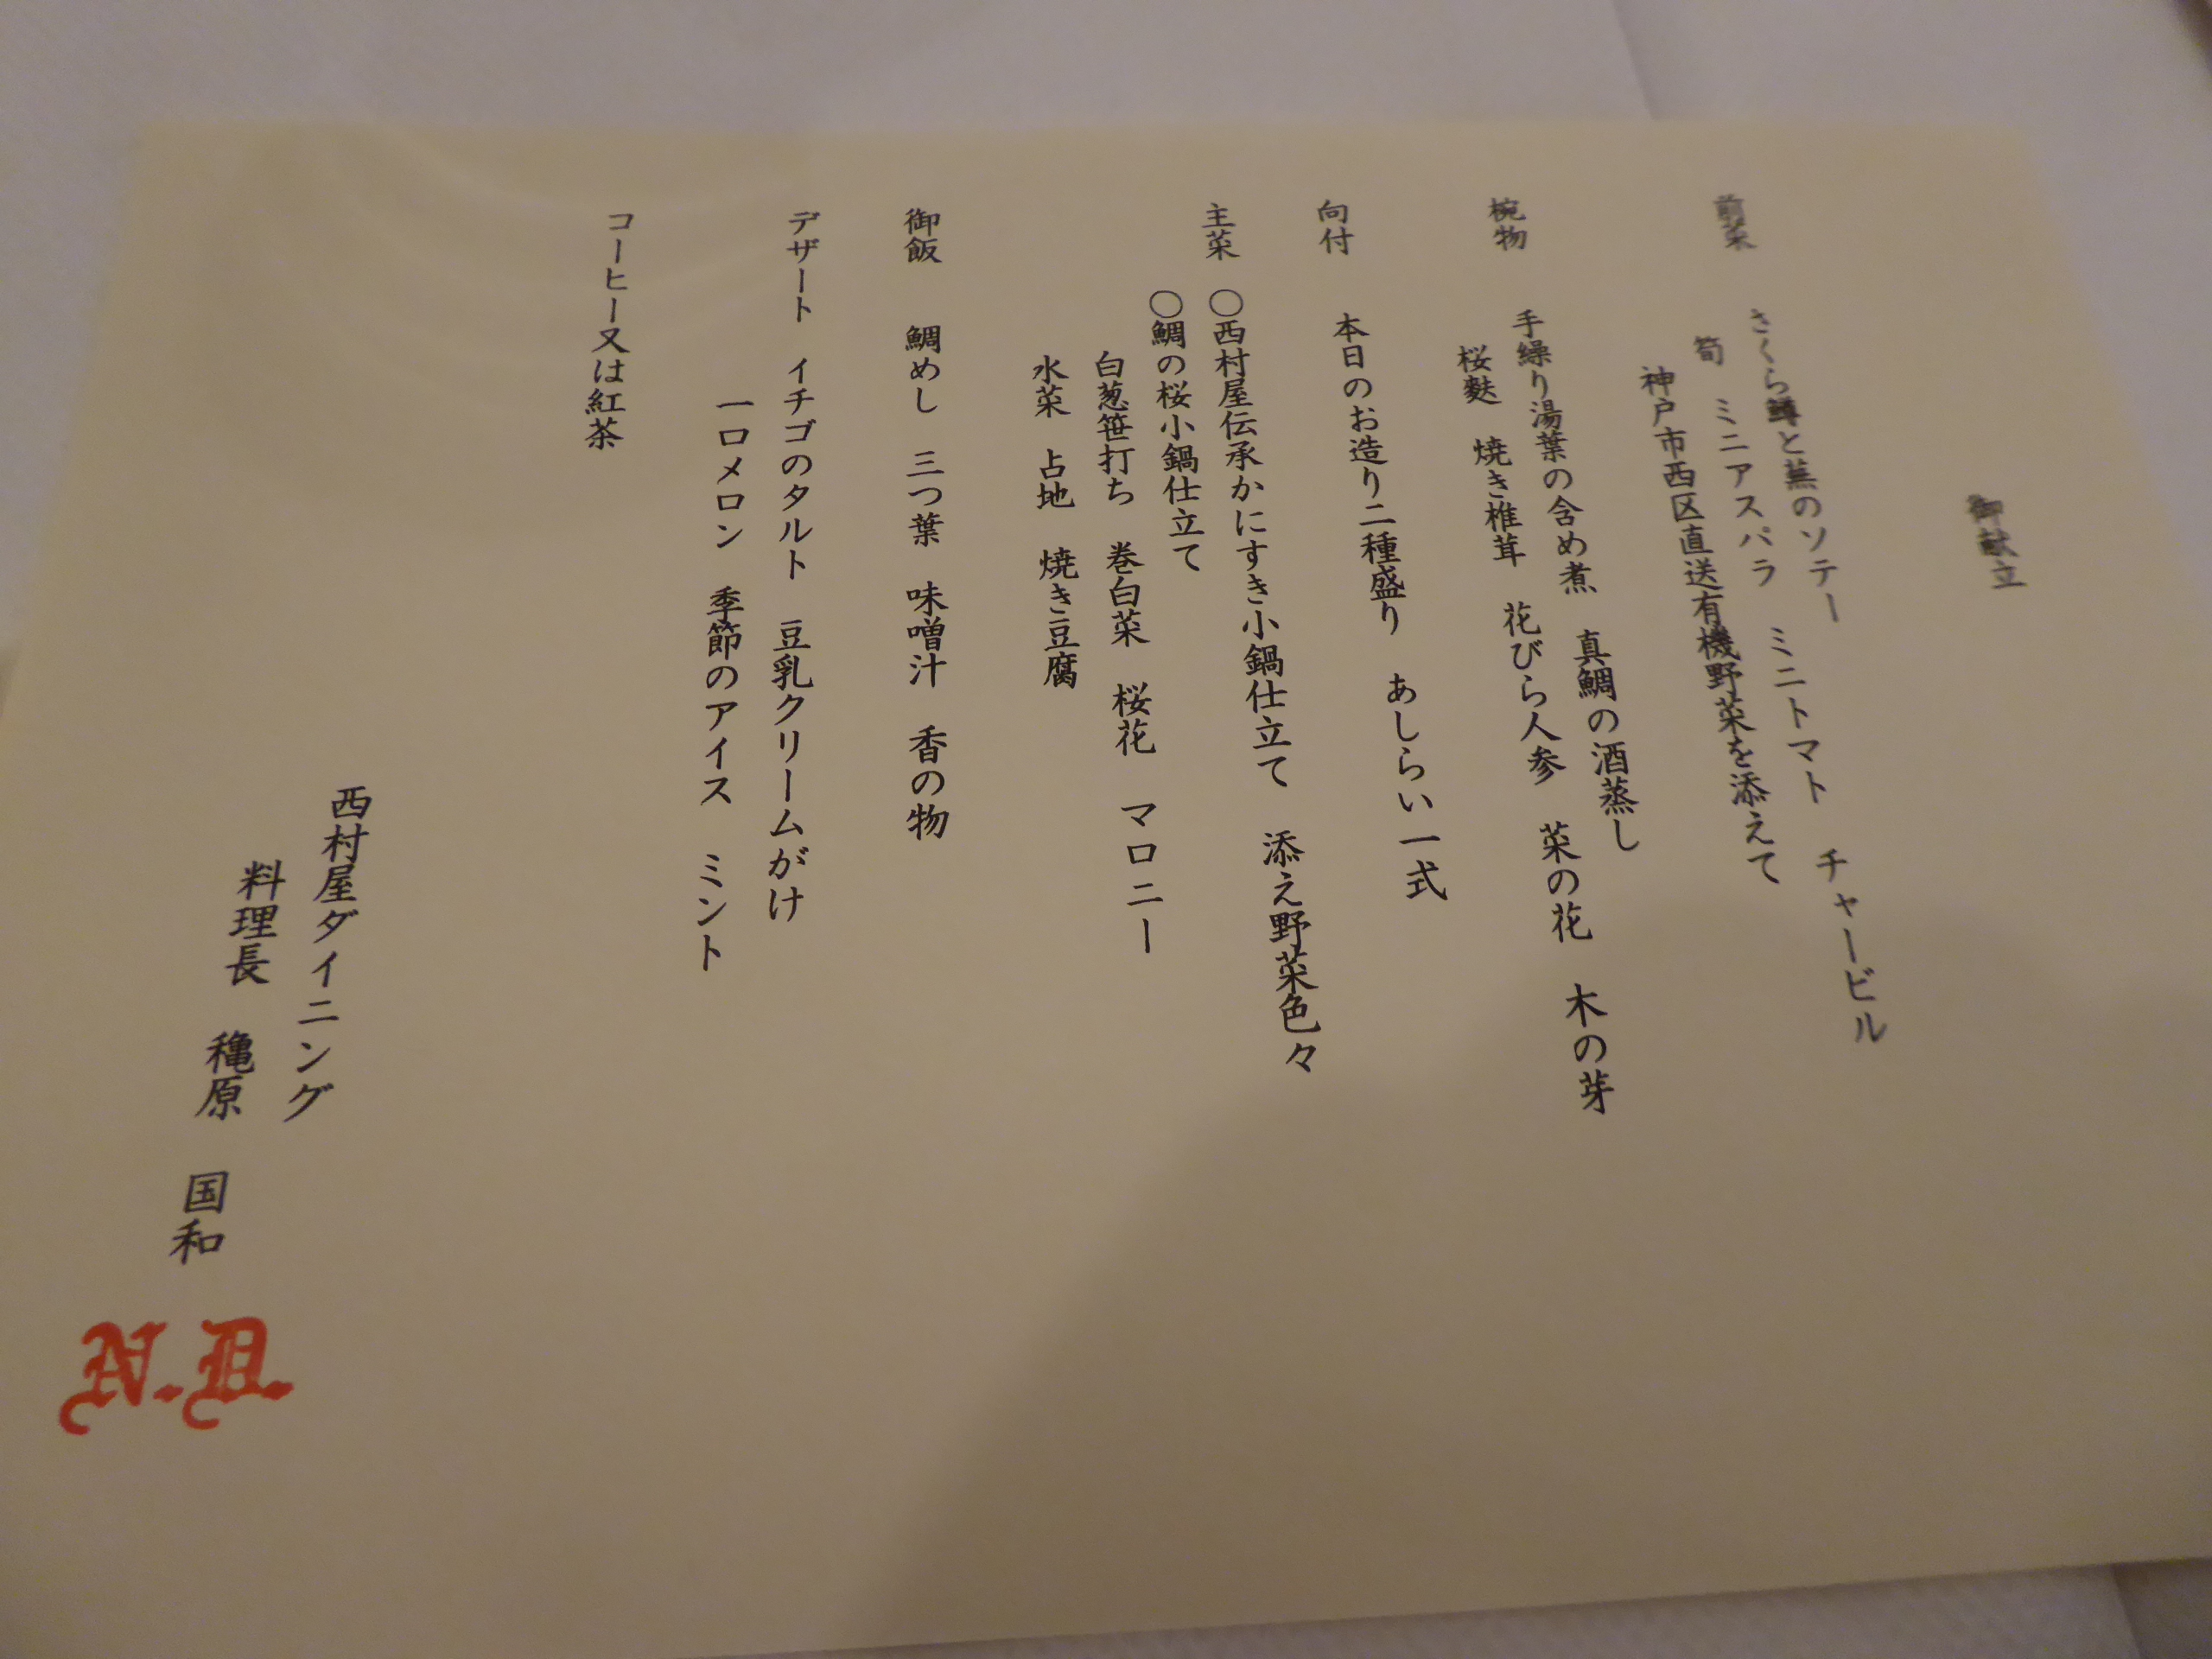 御献立
前菜 さくら鱒と蕪のソテー
筍 ミニアスパラ ミニトマト チャービル
神戸市西区直送有機野菜を添えて
椀物 手繰り湯葉の含め煮 真鯛の酒蒸し
桜麩 焼き椎茸 花びら人参 菜の花 木の芽
向付 本日のお造り二種盛り あしらい一式
主菜 〇西村屋伝承かにすき小鍋仕立て 添え野菜色々
〇鯛の桜小鍋仕立て
白葱笹打ち 巻白菜 桜花 マロニー
水菜 占地 焼き豆腐
御飯 鯛めし 三つ葉 味噌汁 香の物
デザート イチゴのタルト 豆乳クリームがけ
一口メロン 季節のアイス ミント
コーヒー又は紅茶
西村屋ダイニング
料理長 穐原 国和
N.D.